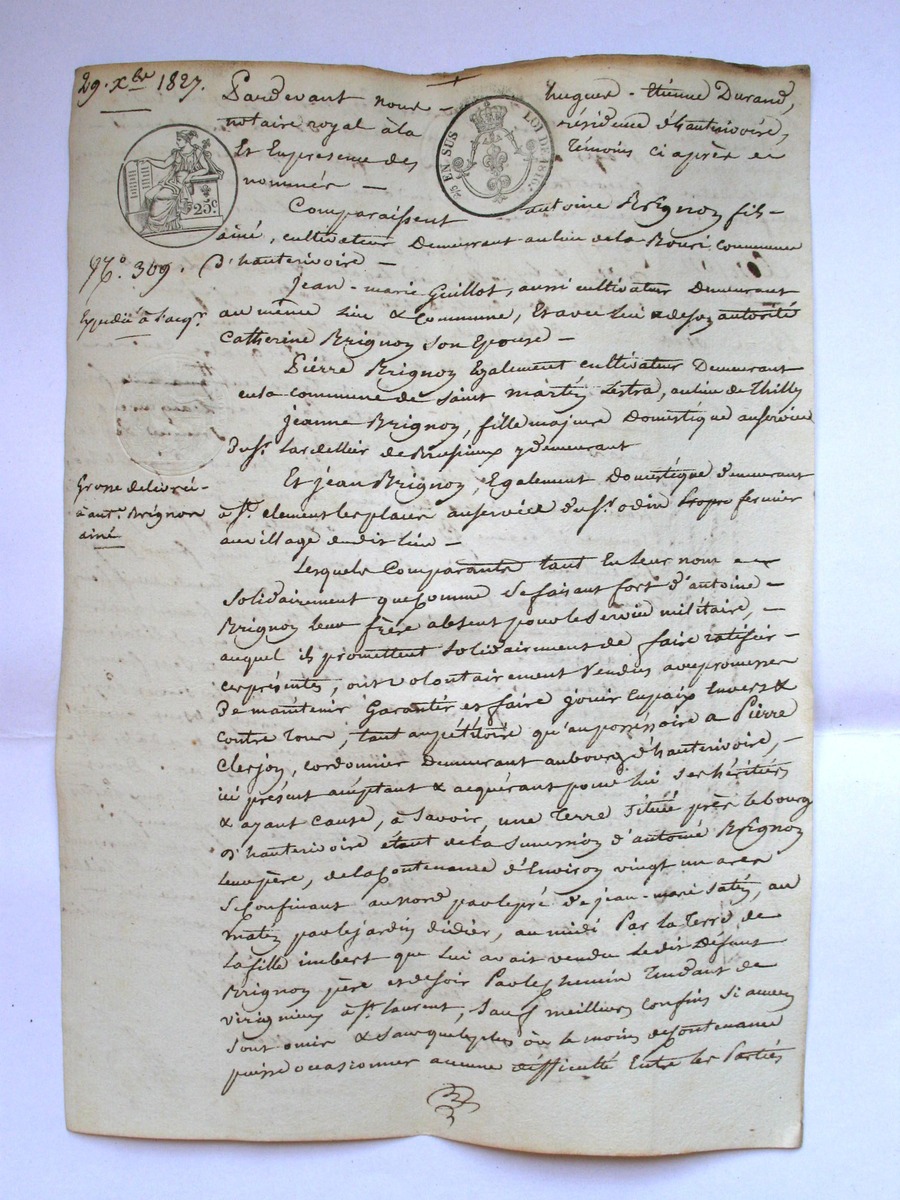 29. Xbre 1827.
Pardevant nous - hugues - Etienne Durand,
notaire royal à la résidence d'hauterivoire,
Et En presence des témoins ci après
nommés -
EN SUS LOI DE 1816
25c
Comparaissent antoine Brignon fils
ainé, cultivateur Demeurant au lieu de la commune
No. 369.
d'hauterivoire -
Jean-marie Guillot, aussi cultivateur Demeurant
Expédié à l'acqr
au même lieu & commune, Et avec lui & de son autorité
Catherine Brignon son Epouse -
Pierre Brignon Egalement cultivateur Demeurant
en la commune de saint martin lestra, au lieu de Thilly
jeanne Brignon, fille majeure Domestique au service
du sr. Lardellier de Brusieux y demeurant
Et jean Brignon, Egalement Domestique demeurant
Grosse délivrée
à ant. Brignon
ainé
à st. clement les places au service du sr. odin fermier
au village du dit lieu -
Lesquels Comparants tant En leur nom
solidairement que comme se faisant fort d'antoine -
Brignon leur frère absent pour le service militaire, -
auquel ils promettent solidairement de faire ratifier -
ces présentes, ont volontairement Vendus avec promesse
De maintenir Garantir et faire jouir En paix Envers &
contre tous, tant au pétitoire qu'au possessoire a Pierre
Clerjon, cordonnier Demeurant au bourg d'hauterivoire, -
ici présent acceptant & acquérant pour lui ses héritiers
& ayant cause, à savoir, une Terre située près le bourg
d'hauterivoire étant de la succession d'antoine Brignon
leur père, de la Contenance d'Environ vingt un ares
se confinant au nord par le pré de jean-marie satin, au
matin par le jardin didier, au midi Par la Terre de
la fille imbert que lui avait vendu le dit Défunt
Brignon père et de soir Par le chemin Tendant de
virignieu à st. laurent, sauf meilleurs confins si aucuns
sont omis & sans que le plus ou le moins de Contenance
puisse occasionner aucune difficulté Entre les Parties